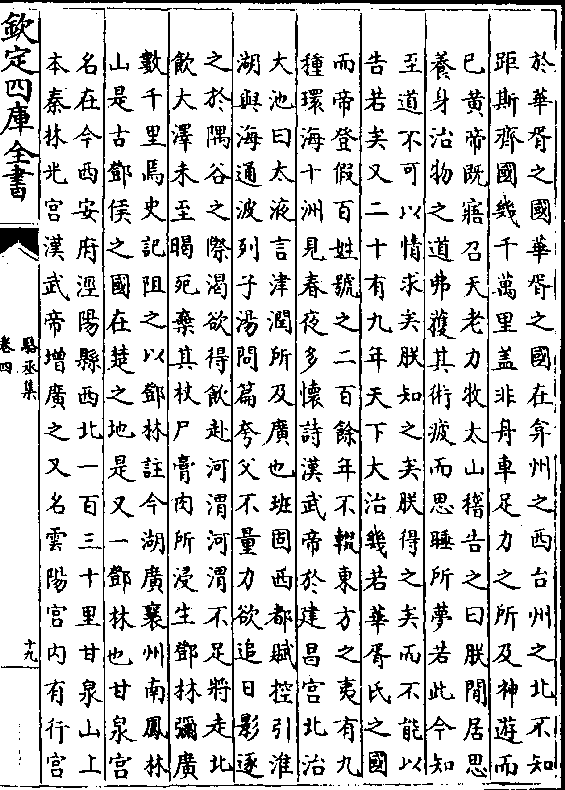 於華胥之國華胥之國在弇州之西台州之北不知
距斯齊國幾千萬里盖非舟車足力之所及神遊而
已黄帝既寤召天老力牧太山稽告之曰朕閒居思
養身治物之道弗獲其術疲而思睡所夢若此今知
至道不可以情求矣朕知之矣朕得之矣而不能以
告若矣又二十有九年天下大治幾若華胥氏之國
而帝登假百姓號之二百餘年不輟東方之夷有九
種環海十洲見春夜多懷詩漢武帝於建昌宫北治
大池曰太液言津潤所及廣也班固西都賦控引淮
湖與海通波列子湯問篇夸父不量力欲追日影逐
之於隅谷之際渴欲得飲赴河渭河渭不足將走北
飲大澤未至暍死棄其杖尸膏肉所浸生鄧林彌廣
數千里焉史記阻之以鄧林註今湖廣襄州南鳳林
山是古鄧侯之國在楚之地是又一鄧林也甘泉宫
名在今西安府涇陽縣西北一百三十里甘泉山上
本秦林光宫漢武帝增廣之又名雲陽宫内有行宫
欽定四庫全書
駱丞集
卷四
十九